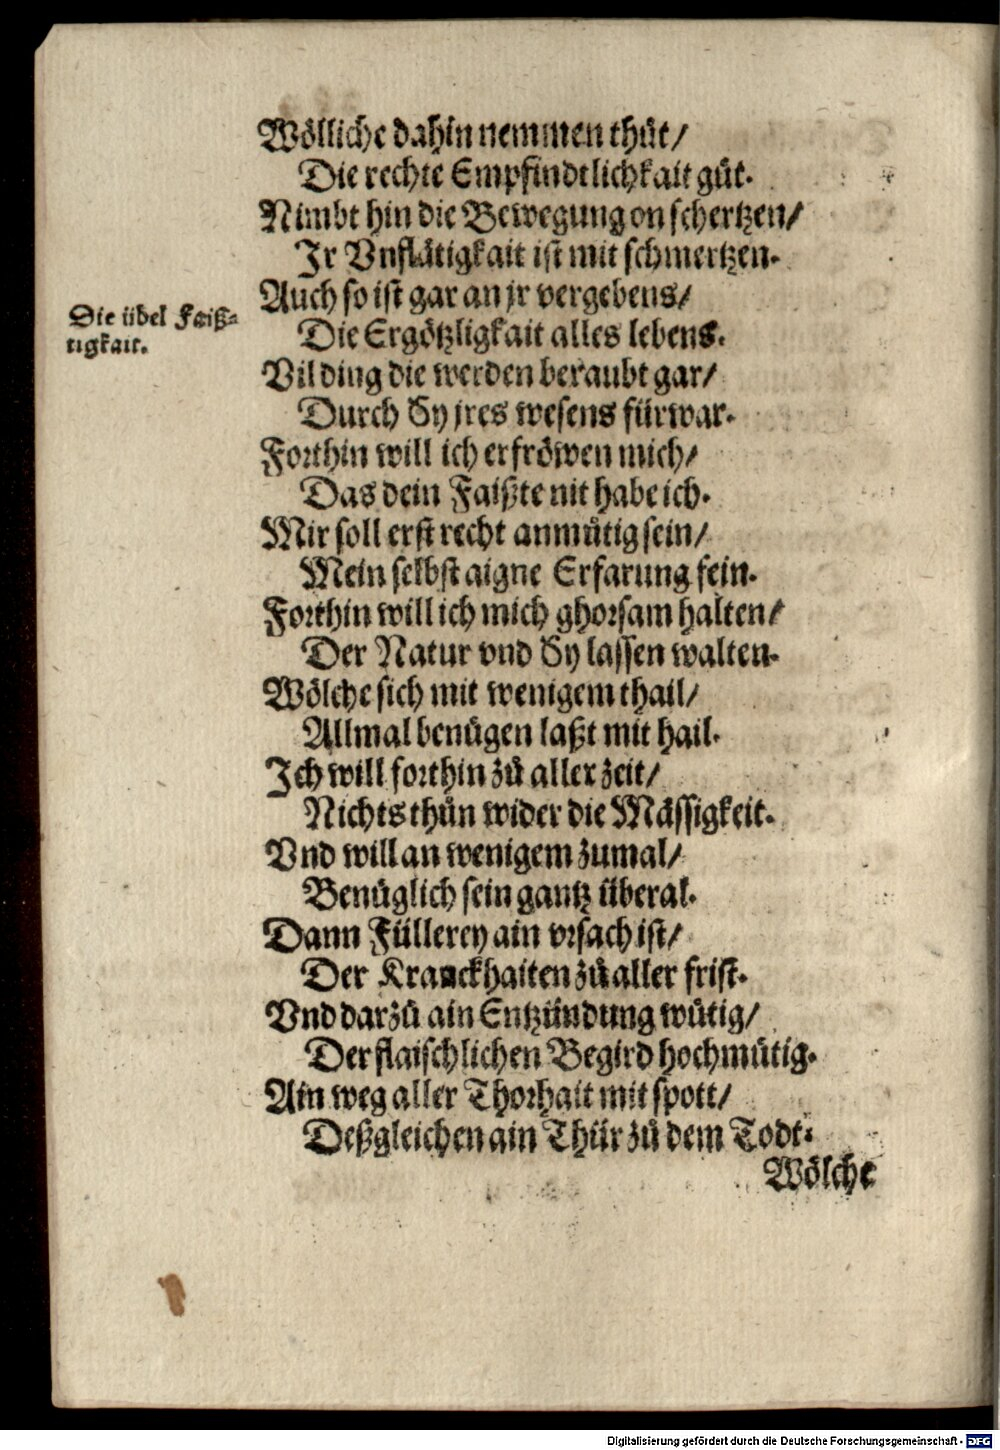 Wölliche dahin nemmen thůt/
Die rechte Empfindtlichkait gůt.
Nimbt hin die Bewegung on schertzen/
Ir Vnflätigkait ist mit schmertzen.
Auch so ist gar an jr vergebens/
Die übel Faiß-
tigkait.
Die Ergötzligkait alles lebens.
Vil ding die werden beraubt gar/
Durch Sy jres wesens fürwar.
Forthin will ich erfröwen mich/
Das dein Faißte nit habe ich.
Mir soll erst recht anmůtig sein/
Mein selbst aigne Erfarung fein.
Forthin will ich mich ghorsam halten/
Der Natur vnd Sy lassen walten.
Wölche sich mit wenigem thail/
Allmal benügen laßt mit hail.
Ich will forthin zů aller zeit/
Nichts thůn wider die Mässigkeit.
Vnd will an wenigem zumal/
Benüglich sein gantz überal.
Dann Füllerey ain vrsach ist/
Der Kranckhaiten zů aller frist.
Vnd darzů ain Entzündung wůtig/
Der flaischlichen Begird hochmůtig.
Ain weg aller Thorhait mit spott/
Deßgleichen ain Thür zů dem Todt.
Wölche
Digitalisierung gefördert durch die Deutsche Forschungsgemeinschaft - DFG